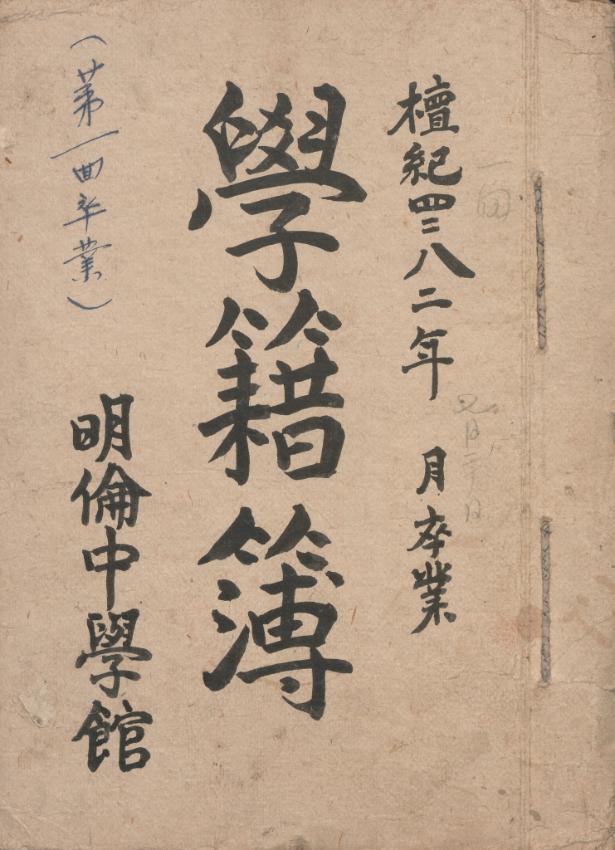 檀紀四二八二年 月卒業
學籍簿
明倫中學館
(第一回卒業)